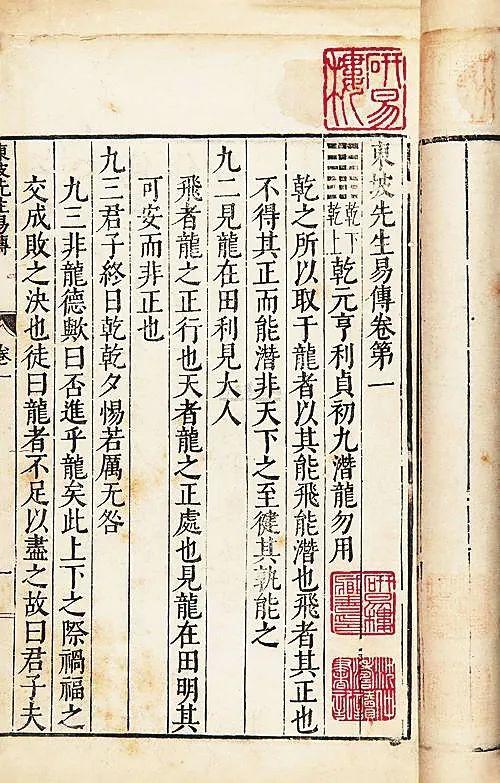 研易樓
東坡先生易傳卷第一
乾下乾上乾元亨利貞初九潛龍勿用
乾之所以取于龍者以其能飛能潛也飛者其正也
不得其正而能潛非天下之至健其孰能之
九二見龍在田利見大人
飛者龍之正行也天者龍之正處也見龍在田明其
可安而非正也
九三君子終日乾乾夕惕若厲无咎
九三非龍德歟曰否進乎龍矣此上下之際禍福之
交成敗之決也徒曰龍者不足以盡之故曰君子夫
東坡先生易傳
卷一
一